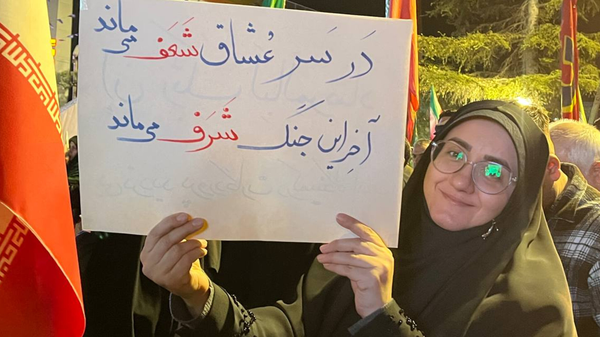 دَر سَرِ عُشاق شَعَف می‌ماند
آخرِ این جَنگ شَرَف می‌ماند